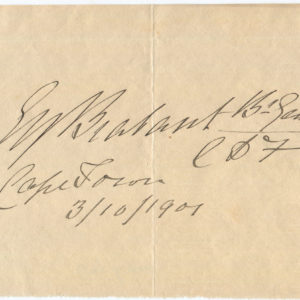 EY Brabant Br Gen
C D F
Cape Town
3/10/1901